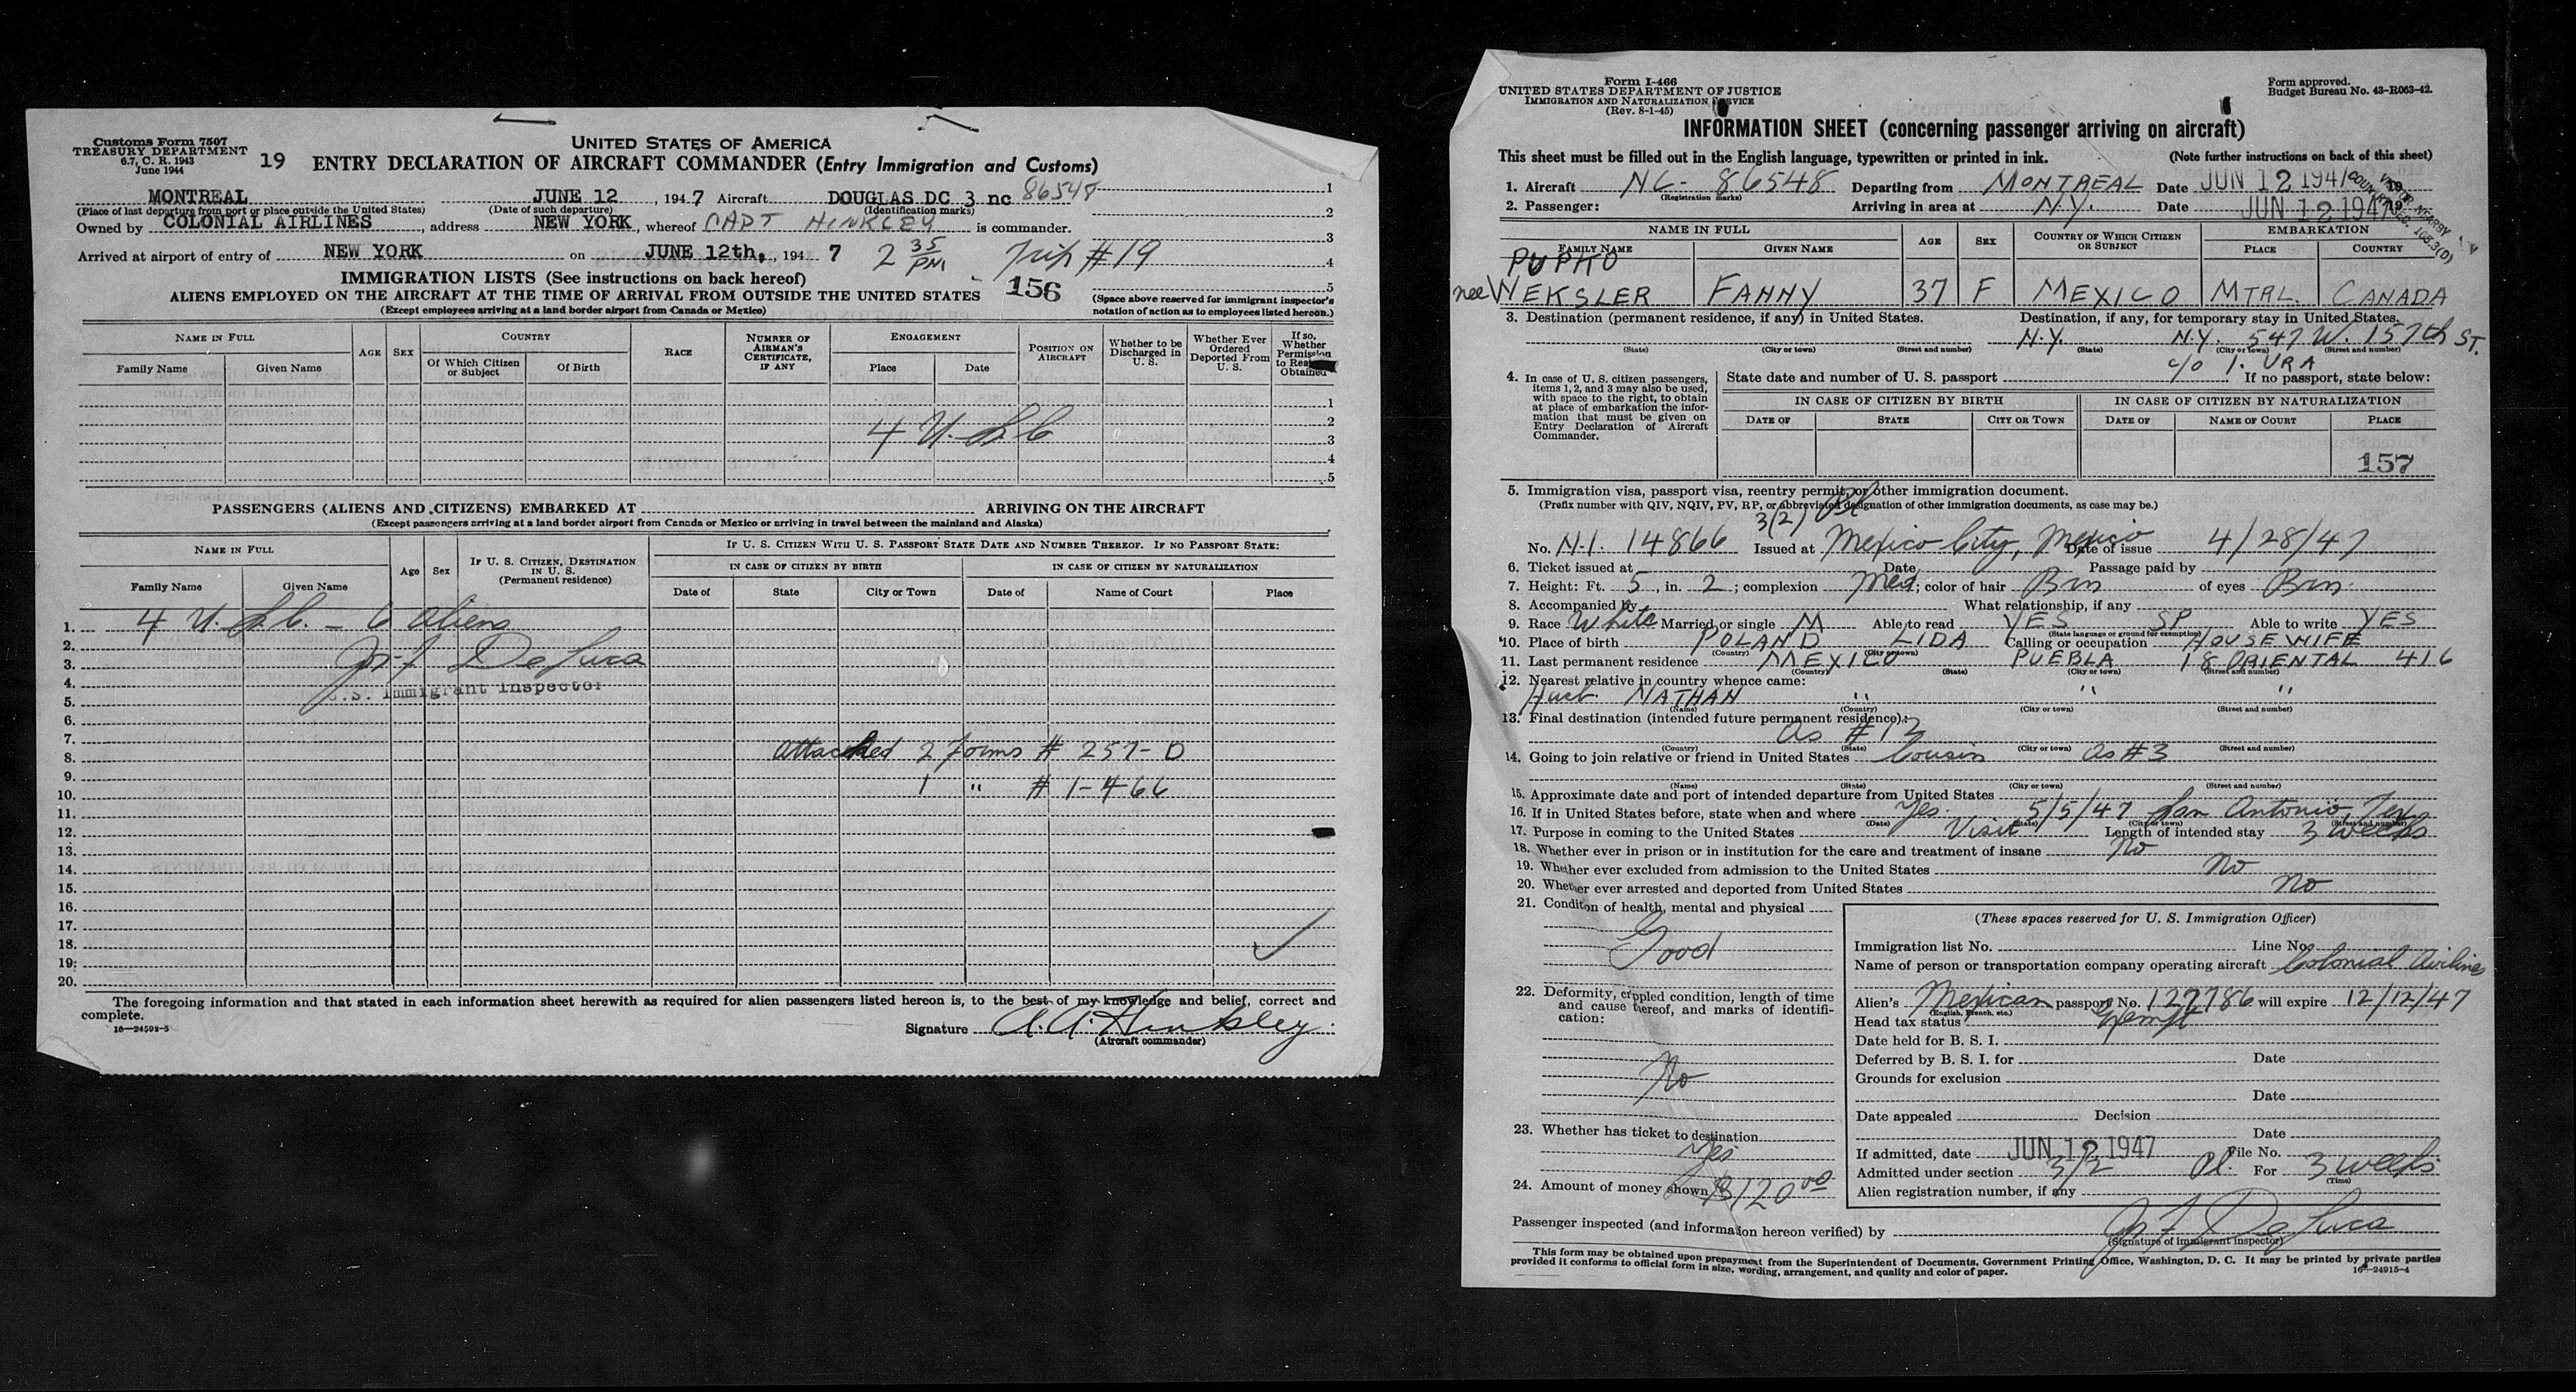 Customs Form 7507
TREASURY DEPARTMENT
6.7, C. R. 1943
June 1944
19
UNITED STATES OF AMERICA
ENTRY DECLARATION OF AIRCRAFT COMMANDER (Entry Immigration and Customs)
MONTREAL JUNE 12, 1947 Aircraft DOUGLAS DC 3 nc 86548 1
(Place of last departure from port or place outside the United States) (Date of such departure) (Identification marks) 2
Owned by COLONIAL AIRLINES, address NEW YORK, whereof CAPT HINKLEY is commander.
3
Arrived at airport of entry of NEW YORK on JUNE 12th, 1947 2 35 PM Trip #19 4
IMMIGRATION LISTS (See instructions on back hereof) 156 5
ALIENS EMPLOYED ON THE AIRCRAFT AT THE TIME OF ARRIVAL FROM OUTSIDE THE UNITED STATES
(Except employees arriving at a land border airport from Canada or Mexico)
(Space above reserved for immigrant inspector's notation of action as to employees listed hereon.)
NAME IN FULL AGE SEX COUNTRY RACE NUMBER OF AIRMAN'S CERTIFICATE, IF ANY ENGAGEMENT POSITION ON AIRCRAFT Whether to be Discharged in U. S. Whether Ever Ordered Deported From U. S. If so, Whether Permission to Obtained
Family Name Given Name Of Which Citizen or Subject Of Birth Place Date
1
2
4 U.S.C
3
4
5
PASSENGERS (ALIENS AND CITIZENS) EMBARKED AT ARRIVING ON THE AIRCRAFT
(Except passengers arriving at a land border airport from Canada or Mexico or arriving in travel between the mainland and Alaska)
NAME IN FULL Age Sex IF U. S. CITIZEN, DESTINATION IN U. S. (Permanent residence) IF U. S. CITIZEN WITH U. S. PASSPORT STATE DATE AND NUMBER THEREOF. IF NO PASSPORT STATE:
IN CASE OF CITIZEN BY BIRTH IN CASE OF CITIZEN BY NATURALIZATION
Family Name Given Name Date of State City or Town Date of Name of Court Place
1. 4 U.S.C. - 6 aliens
2.
3. De Luca
4. U.S. Immigrant Inspector
5.
6.
7.
8. Attached 2 forms # 257-D
9.
10. 1 " # I-466
11.
12.
13.
14.
15.
16.
17.
18.
19.
20.
The foregoing information and that stated in each information sheet herewith as required for alien passengers listed hereon is, to the best of my knowledge and belief, correct and
complete.
16—24502-5
Signature A.A. Hinkley
(Aircraft commander)
Form I-466
UNITED STATES DEPARTMENT OF JUSTICE
IMMIGRATION AND NATURALIZATION SERVICE
(Rev. 8-1-45)
Form approved.
Budget Bureau No. 43-R063-42.
INFORMATION SHEET (concerning passenger arriving on aircraft)
This sheet must be filled out in the English language, typewritten or printed in ink. (Note further instructions on back of this sheet)
1. Aircraft NC- 86548 Departing from MONTREAL Date JUN 12 1947
(Registration marks)
2. Passenger: Arriving in area at N.Y. Date JUN 12 1947
NAME IN FULL AGE SEX COUNTRY OF WHICH CITIZEN OR SUBJECT EMBARKATION
FAMILY NAME GIVEN NAME PLACE COUNTRY
PUPKO
nee WEKSLER FANNY 37 F MEXICO MTRL. CANADA
3. Destination (permanent residence, if any) in United States. Destination, if any, for temporary stay in United States.
N.Y. N.Y. 547 W. 157th ST.
(State) (City or town) (Street and number) (State) (City or town) (Street and number)
c/o I. URA
4. In case of U. S. citizen passengers, items 1, 2, and 3 may also be used, with space to the right, to obtain at place of embarkation the information that must be given on Entry Declaration of Aircraft Commander.
State date and number of U. S. passport If no passport, state below:
IN CASE OF CITIZEN BY BIRTH IN CASE OF CITIZEN BY NATURALIZATION
DATE OF STATE CITY OR TOWN DATE OF NAME OF COURT PLACE
157
5. Immigration visa, passport visa, reentry permit, or other immigration document.
(Prefix number with QIV, NQIV, PV, RP, or abbreviated designation of other immigration documents, as case may be.)
3(2) Pl
No. N.I. 14866 Issued at Mexico City, Mexico Date of issue 4/28/47
6. Ticket issued at Date Passage paid by
7. Height: Ft. 5, in. 2; complexion Med; color of hair Brn of eyes Brn.
8. Accompanied by What relationship, if any
9. Race White Married or single M Able to read YES SP Able to write YES
(State language or ground for exemption)
10. Place of birth POLAND LIDA Calling or occupation HOUSEWIFE
(Country) (City or town)
11. Last permanent residence MEXICO PUEBLA 18 ORIENTAL 416
(Country) (State) (City or town) (Street and number)
12. Nearest relative in country whence came:
Husb. NATHAN " " "
(Name) (Country) (City or town) (Street and number)
13. Final destination (intended future permanent residence):
as #12
(Country) (State) (City or town) (Street and number)
14. Going to join relative or friend in United States Cousin as #3
(Name) (State) (City or town) (Street and number)
15. Approximate date and port of intended departure from United States
16. If in United States before, state when and where Yes. 5/5/47 San Antonio, Tex
(Date) (State) (City or town) (Street and number)
17. Purpose in coming to the United States Visit Length of intended stay 3 weeks
18. Whether ever in prison or in institution for the care and treatment of insane No
19. Whether ever excluded from admission to the United States No
20. Whether ever arrested and deported from United States No
21. Conditon of health, mental and physical
Good
22. Deformity, crippled condition, length of time and cause thereof, and marks of identification:
No
23. Whether has ticket to destination
Yes
24. Amount of money shown $120.00
(These spaces reserved for U. S. Immigration Officer)
Immigration list No. Line No.
Name of person or transportation company operating aircraft Colonial Airlines
Alien's Mexican passport No. 127786 will expire 12/12/47
(English, French, etc.)
Head tax status Exempt
Date held for B. S. I.
Deferred by B. S. I. for Date
Grounds for exclusion
Date
Date appealed Decision
Date
If admitted, date JUN 12 1947 File No.
Admitted under section 3/2 Pl. For 3 weeks
(Time)
Alien registration number, if any
Passenger inspected (and information hereon verified) by De Luca
(Signature of immigrant inspector)
This form may be obtained upon prepayment from the Superintendent of Documents, Government Printing Office, Washington, D. C. It may be printed by private parties
provided it conforms to official form in size, wording, arrangement, and quality and color of paper.
16—24915-4